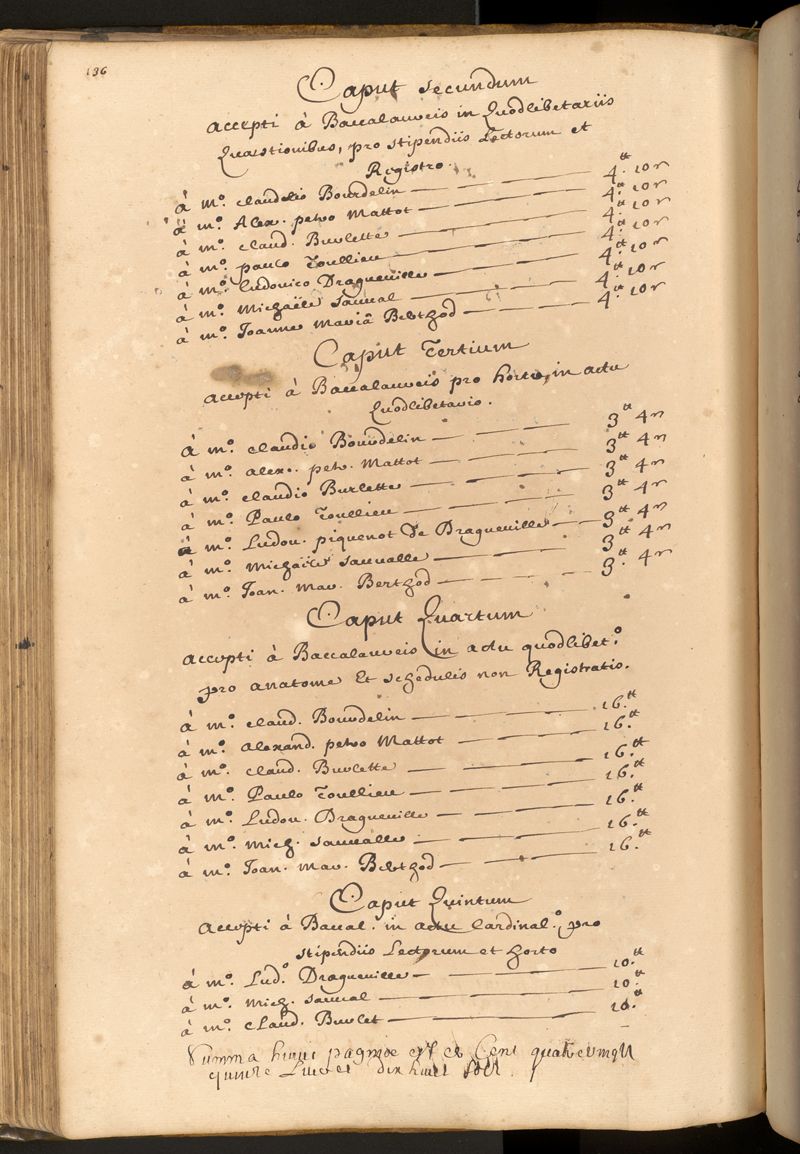 136
Caput secundum
accepti à Baccalaureis in Quodlibetariis
Quæstionibus, pro stipendiis Lectorum et
Registro.
à mº. claudio Bourdelin — 4.tt 10 s
à mº. Alex. petro Mattot — 4.tt 10 s
à mº. claud. Burlette — 4.tt 10 s
à mº. paulo Toullieu — 4.tt 10 s
à mº. ludovico Dragueville — 4.tt 10 s
à mº. Michaële Sauual — 4.tt 10 s
à mº. Joanne Mariâ Bertzod — 4.tt 10 s
Caput Tertium
accepti à Baccalaureis pro horto, in actu
Quodlibetario.
à mº. claudio Bourdelin — 3tt 4 s
à mº. alex. petr. Mattot — 3tt 4 s
à mº. claudio Burlette — 3tt 4 s
à mº. Paulo Toullieu — 3tt 4 s
à mº. Ludou. piquenot De Dragueville — 3tt 4 s
à mº. Michaële Sauualle — 3tt 4 s
à mº. Joan. Mar. Bertzod — 3tt. 4 s
Caput Quartum
accepti à Baccalaureis in actu quodlibet.º
pro anatome Et schedulis non Registratis.
à mº. claud. Bourdelin — 16.tt
à mº. alexand. petro Mattot — 16.tt
à mº. claud. Burlette — 16.tt
à mº. Paulo Toullieu — 16.tt
à mº. Ludou. Dragueville — 16.tt
à mº. Mich. Sauualle — 16.tt
à mº. Joan. Mar. Bertzod — 16.tt
Caput Quintum
accepti à Baccal. in actu Cardinal.º, pro
stipendiis Lectorum et horto
à mº. Lud.º Dragueville — 10.tt
à mº. Mich. Sauual — 10.tt
à mº. claud. Burlet — 10.tt
Summa huius paginæ est Cent quatreuingt
quinze Liures dix huit solz.